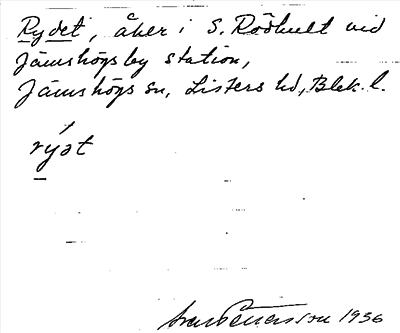 Rydet, åker i S. Rödhult vid
Jämshögsby station,
Jämshögs sn, Listers hd, Blek. l.
rýǝt
Pettersson 1936